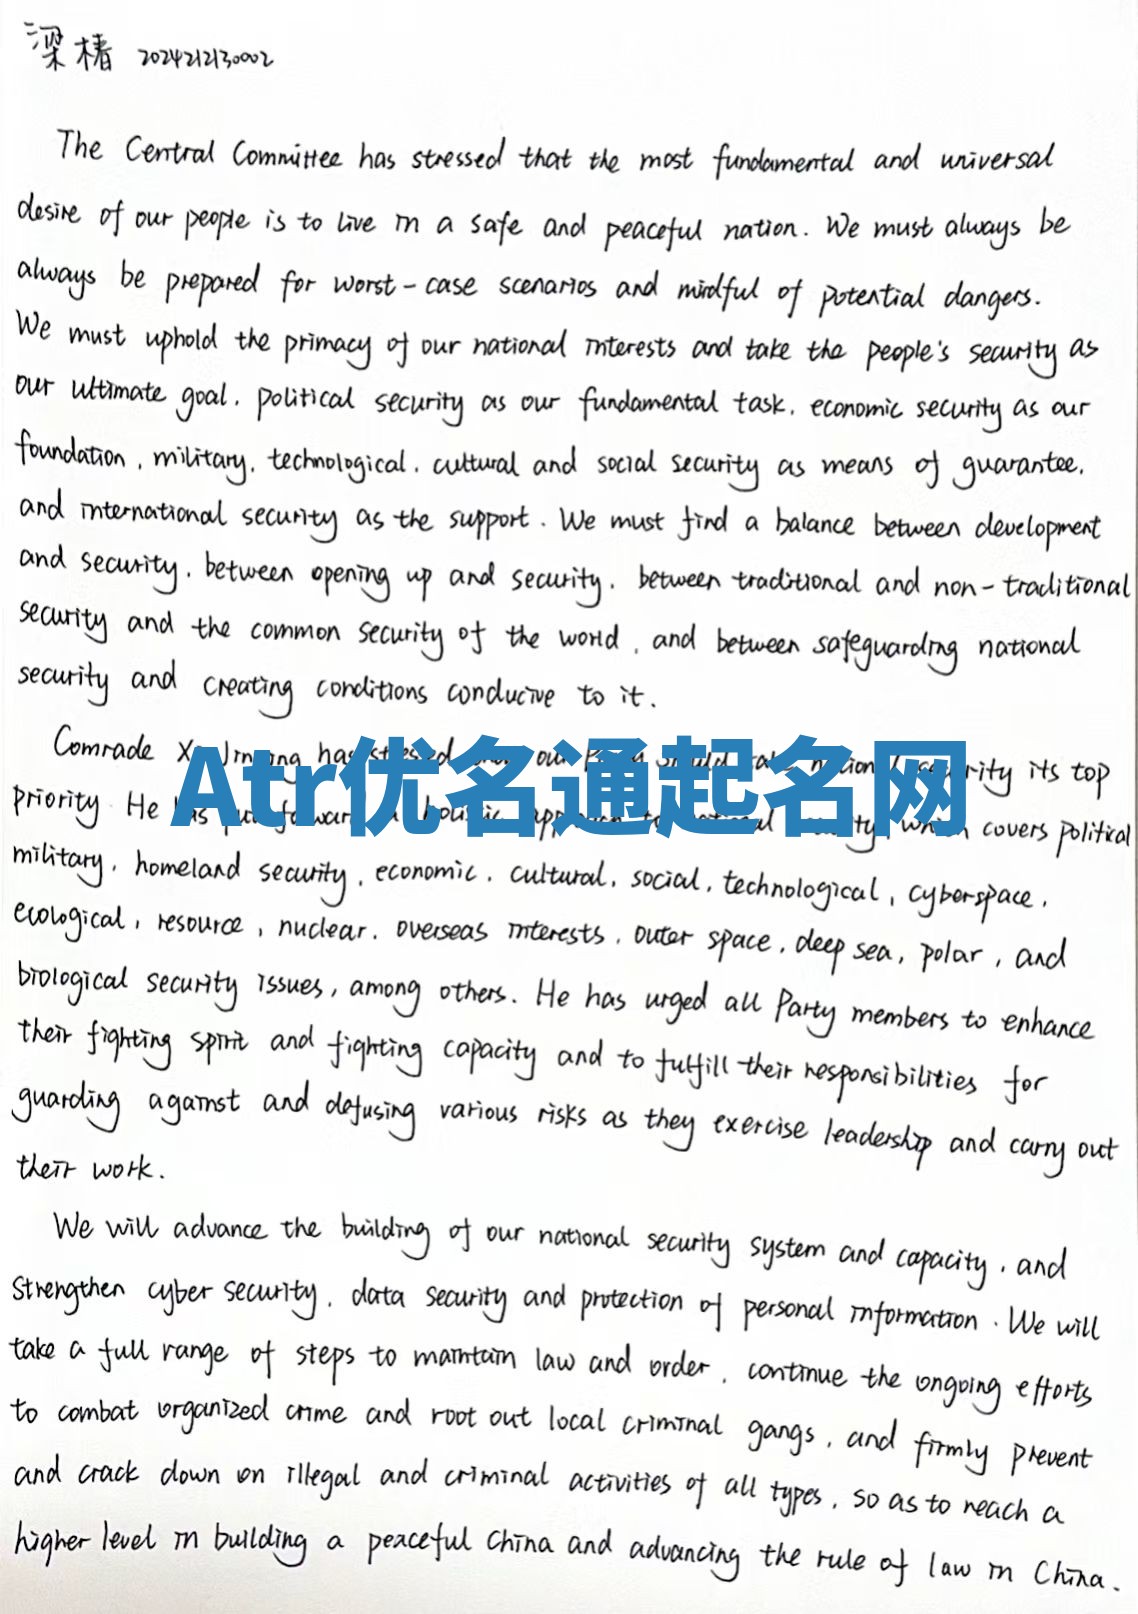 梁椿 2024212130002
The Central Committee has stressed that the most fundamental and universal
desire of our people is to live in a safe and peaceful nation. We must always be
always be prepared for worst-case scenarios and mindful of potential dangers.
We must uphold the primacy of our national interests and take the people's security as
our ultimate goal, political security as our fundamental task, economic security as our
foundation, military, technological, cultural and social security as means of guarantee,
and international security as the support. We must find a balance between development
and security, between opening up and security, between traditional and non-traditional
security and the common security of the world, and between safeguarding national
security and creating conditions conducive to it.
Comrade Xi Jinping has stressed our Party should take national security its top
Atr优名通起名网
priority. He has put forward a holistic approach to national security, which covers political
military, homeland security, economic, cultural, social, technological, cyberspace,
ecological, resource, nuclear, overseas interests, outer space, deep sea, polar, and
biological security issues, among others. He has urged all Party members to enhance
their fighting spirit and fighting capacity and to fulfill their responsibilities for
guarding against and defusing various risks as they exercise leadership and carry out
their work.
We will advance the building of our national security system and capacity, and
strengthen cyber security, data security and protection of personal information. We will
take a full range of steps to maintain law and order, continue the ongoing efforts
to combat organized crime and root out local criminal gangs, and firmly prevent
and crack down on illegal and criminal activities of all types, so as to reach a
higher level in building a peaceful China and advancing the rule of law in China.